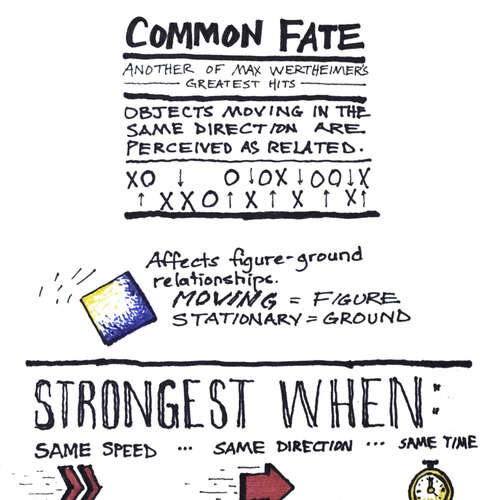 COMMON FATE
ANOTHER OF MAX WERTHEIMER'S
GREATEST HITS
OBJECTS MOVING IN THE
SAME DIRECTION ARE
PERCEIVED AS RELATED.
XO ↓ O↓OX↓OO↓X
↑XXO↑X↑X↑X↑
Affects figure-ground
relationships.
MOVING = FIGURE
STATIONARY = GROUND
STRONGEST WHEN:
SAME SPEED ... SAME DIRECTION ... SAME TIME